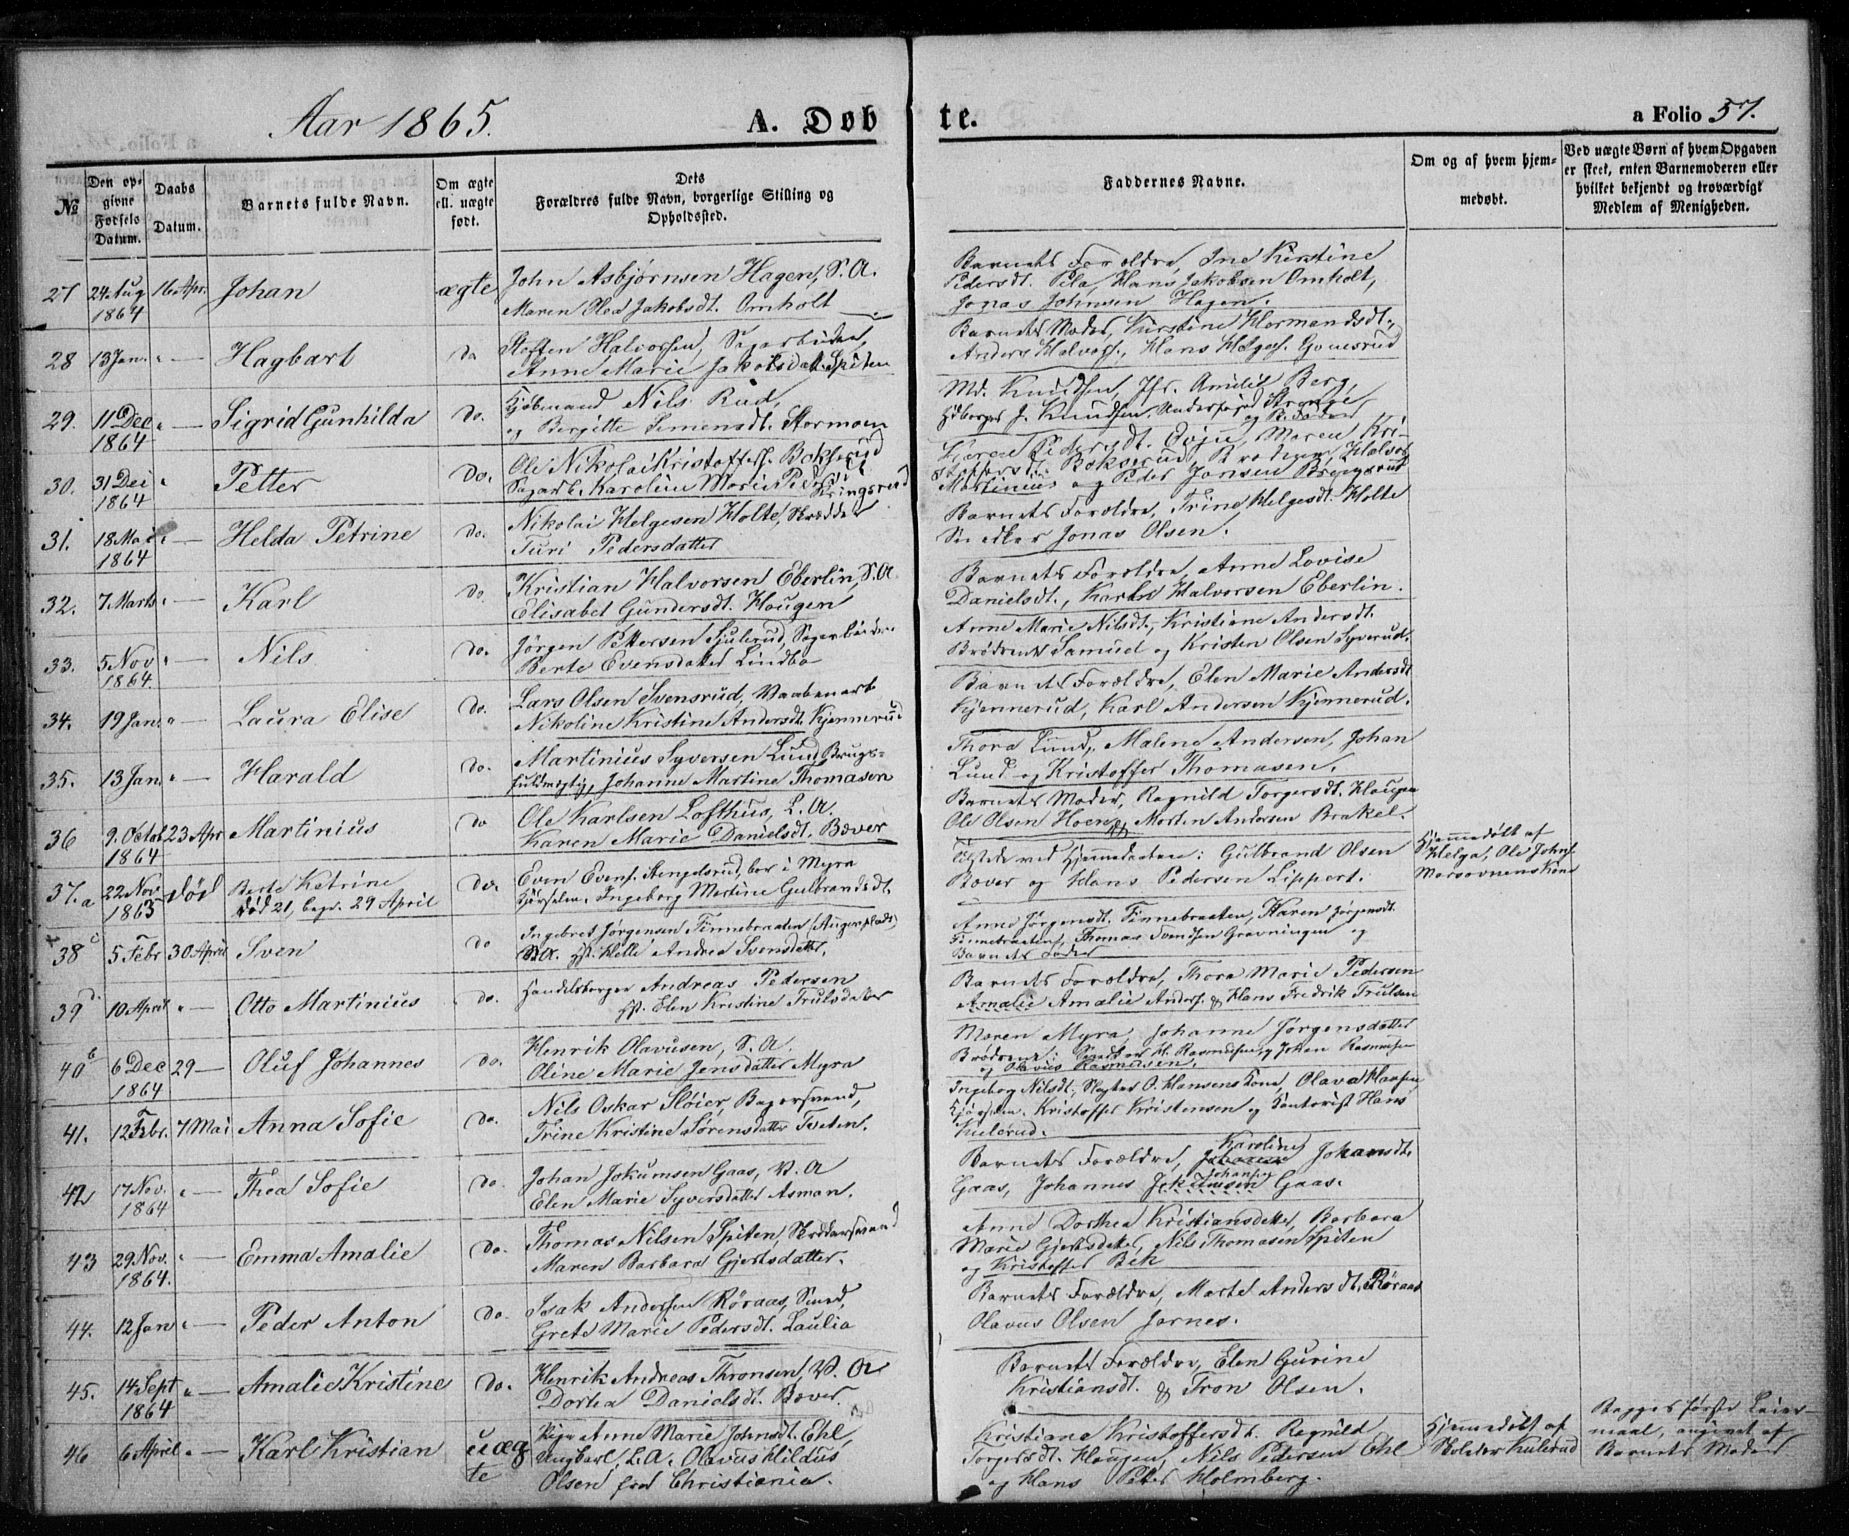 Aar 1865.
A. Døbte.
a Folio 57.
№
Den opgivne Fødsels Datum.
Daabs Datum.
Barnets fulde Navn.
Om ægte ell. uægte født.
Dets Forældres fulde Navn, borgerlige Stilling og Opholdssted.
Faddernes Navne.
Om og af hvem hjemmedøbt.
Ved uægte Børn af hvem Opgaven er skeet, enten Barnemoderen eller hvilket bekjendt og troværdigt Medlem af Menigheden.
27 24 Aug 1864 16 Apr. Johan ægte
John Asbjørnsen Hagen, S. A.
Maren Olea Jakobsdt. Omholt
Barnets Forældre, Ine Kirstine
Pedersdt. Pela, Hans Jakobsen Omholt,
Jonas Johnsen Hagen.
28 13 Jan. " — Hagbart do
Steffen Halvorsen, Sagarbeider,
Anne Marie Jakobsdatt. Spiten
Barnets Moder, Kirstine Hormandsdt.,
Anders Halvors., Hans Helges.
29. 11 Dec 1864 " — Sigrid Gunhilda do.
Kjøbmand Nils Rud,
og Bergitte Simensdt. Stormoen
Md. Knudsen, Jfr. Amilie Berg,
J. Knudsen,
30. 31 Dec 1864 " Petter do.
Ole Nikolai Kristoffers. Bokserud
Sagarb. Karoline Marie Pedersd. Kringsrud
Maren Kri-
stoffersdt. Bokserud, Brødrene Halvor
Martinius og Peder Jansen
31. 18 Mai 1864 " — Helda Petrine do.
Nikolai Helgesen Holte, Skrædder
Turi Pedersdatter
Barnets Forældre, Trine Helgesdt. Holte
Snedker Jonas Olsen.
32. 7 Marts " — Karl do.
Kristian Halvorsen Eberlin, S. A.
Elisabet Gundersdt. Haugen
Barnets Forældre, Anne Lovise
Danielsdt., Karl Halvorsen Eberlin.
33. 5 Nov 1864. " — Nils do.
Jørgen Pettersen Sjulerud, Sagarbeider
Berte Evensdatter Lindbo
Anne Marie Nilsdt., Kristiane Andersdt.
Brødrene Samuel og Kristen Olsen Syverud.
34. 19 Jan. " — Laura Elise do.
Lars Olsen Svensrud, Vaabenarb
Nikoline Kristine Andersdt. Kjennerud
Barnets Forældre, Elen Marie Andersdt
Kjennerud, Karl Andersen Kjennerud.
35. 13 Jan. " — Harald do.
Martinius Syversen Lund, Brugs-
fuldmægtig, Johanne Martine Thomasen
Thora Lund, Malene Andersen, Johan
Lund og Kristoffer Thomasen.
36 9. Octob 1864 23 Apr Martinius do
Ole Karlsen Lofthus, L. A.
Karen Marie Danielsdt. Bæver
Barnets Moder, Ragnild Torgersdt. Haugen
Ole Olsen Hoen og Morten Andersen Brakel.
37. a 22 Nov 1863 død Berte Katrine do.
død 21, begr. 29 April
Even Evens. Stengelsrud, bor i Myra
Ingeborg Martine Gulbrandsdt.
Tilstede ved Hjemmedaaben: Gulbrand Olsen
Bæver og Hans Pedersen Lippert.
Hjemmedøbt af
Helga, Ole Johns.
Marsovnens Kone
38 c 5 Febr 30 April Sven do
Ingebret Jørgensen Finnebraaten
S. A. Hst. Helle Andrea Svensdatter,
Anne Jørgensdt. Finnebraaten, Karen Jørgensdt.
Finnebraaten, Thomas Svendsen Gravningen og
Barnets Fader
39 d. 10 April " — Otto Martinius do.
Handelsborger Andreas Pedersen
Hst. Elen Kristine Trulsdatter
Barnets Forældre, Thora Marie Pedersen
Amalie Amalie Anders. & Hans Fredrik Trulsen
40 b 6 Dec 1864 29 — Oluf Johannes do.
Henrik Olavusen, S. A.
Oline Marie Jensdatter Myra
Maren Myra, Johanne Jørgensdatter
Brødrene: H. Rasmussen, Johan Rasmussen
og Olavus Rasmusen.
41. 12 Febr. 7 Mai Anna Sofie do.
Nils Oskar Sløier, Bagersvend,
Trine Kristine Sørensdatter Tveten.
Ingeborg Nilsdt., Slagter O. Hansens Kone, Olava Hansen,
Kristoffer Kristensen og Kontorist Hans
Kulerud.
42 17 Nov. 1864 " — Thea Sofie do.
Johan Jokumsen Gaas, V. A
Elen Marie Syversdatter Asman.
Barnets Forældre, Karoline Johansdt.
Gaas, Johannes Johansen Gaas.
43 29 Nov. 1864. " Emma Amalie do.
Thomas Nilsen Spiten, Skræddersvend
Maren Barbara Gjertsdatter.
Anne Dorthea Kristiansdatter, Barbara
Marie Gjertsdatter, Nils Thomasen Spiten
og Kristoffer Bek
44. 12 Jan " — Peder Anton do.
Isak Andersen Røraas, Smed,
Grete Marie Pedersdt. Laulia
Barnets Forældre, Marte Andersdt. Røraas
Olavus Olsen Jornes.
45. 14 Sept 1864 " — Amalie Kristine do.
Henrik Andreas Thronsen, V. A
Dortea Danielsdt. Bæver.
Barnets Forældre, Elen Gurine
Kristiansdt. & Tron Olsen.
46 6 April " — Karl Kristian uægte
Pige Anne Marie Johnsdt. Ehl,
Ungkarl, L. A. Olavus Hildus
Olsen fra Christiania.
Kristiane Kristoffersdt. Ragnild
Torgersdt. Haugen, Nils Pedersen Ehl
og Hans Peter Holmberg.
Hjemmedøbt af
Skolelær Kulerud
Begges første Leier-
maal, angivet af
Barnets Moder